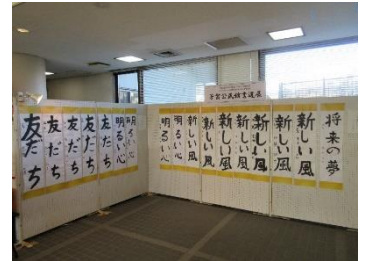 公民館書道展
友だち
友だち
友だち
友だち
友だち
明るい心
明るい心
明るい心
明るい心
新しい風
新しい風
新しい風
新しい風
新しい風
新しい風
新しい風
将来の夢